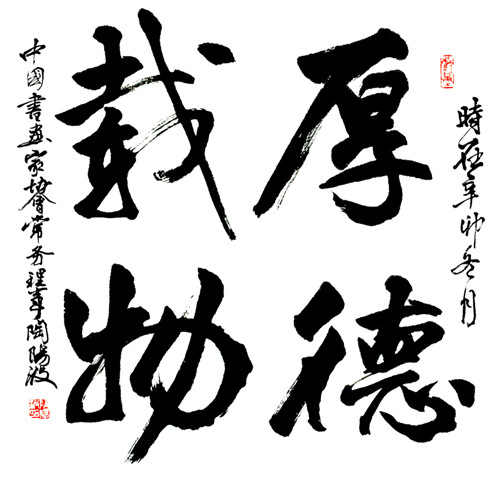 時在辛卯冬月
厚德
載物
中國書畫家協會常务理事陶陽